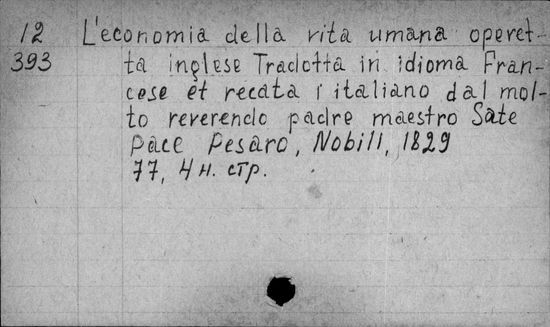 12 L'economia della vita umana operet-
393 ta inglese Tradotta in idioma Fran-
cese et recata i italiano dal mol-
to reverendo padre maestro Sate
Pace Pesaro, Nobili, 1829
77, 4 н. стр.